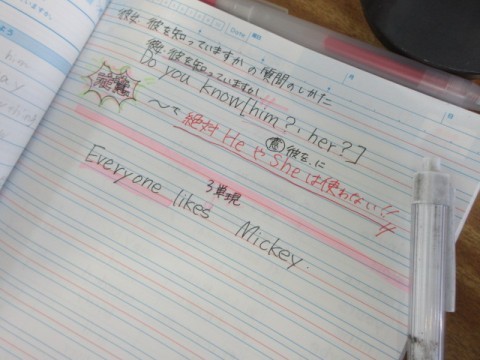 Date
彼女、彼を知っていますか の質問のしかた
彼女、彼を知っていますか？
Do you know [him?, her?]
㊟ 彼を、に
〜で 絶対 He や She は使わない!!
3単現
Everyone likes Mickey.
him